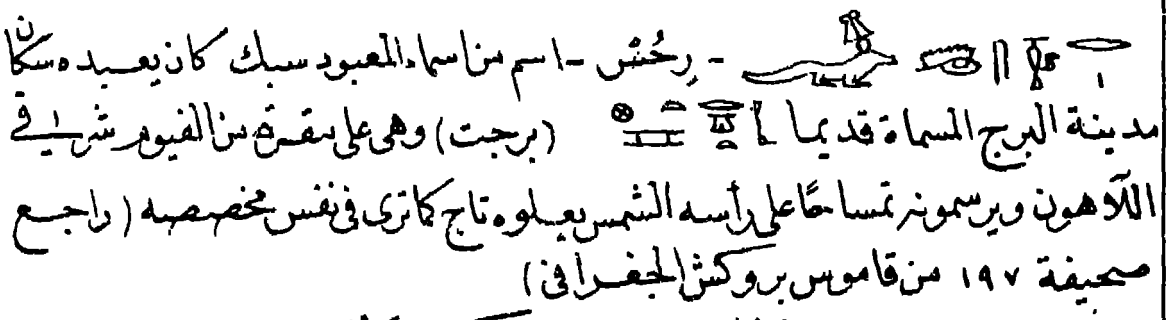 - رِحُسْ - اسم من اسماء المعبود سبك كان يعبده سكان
مدينة البرج المسماة قديما (برجت) وهى على مقربة من الفيوم شرقى
اللاهون ويرسمونه تمساحًا على رأسه الشمس يعلوه تاج كماترى فى نفس مخصصه (راجع
صحيفة ١٩٧ من قاموس بروكش الجغرافى)